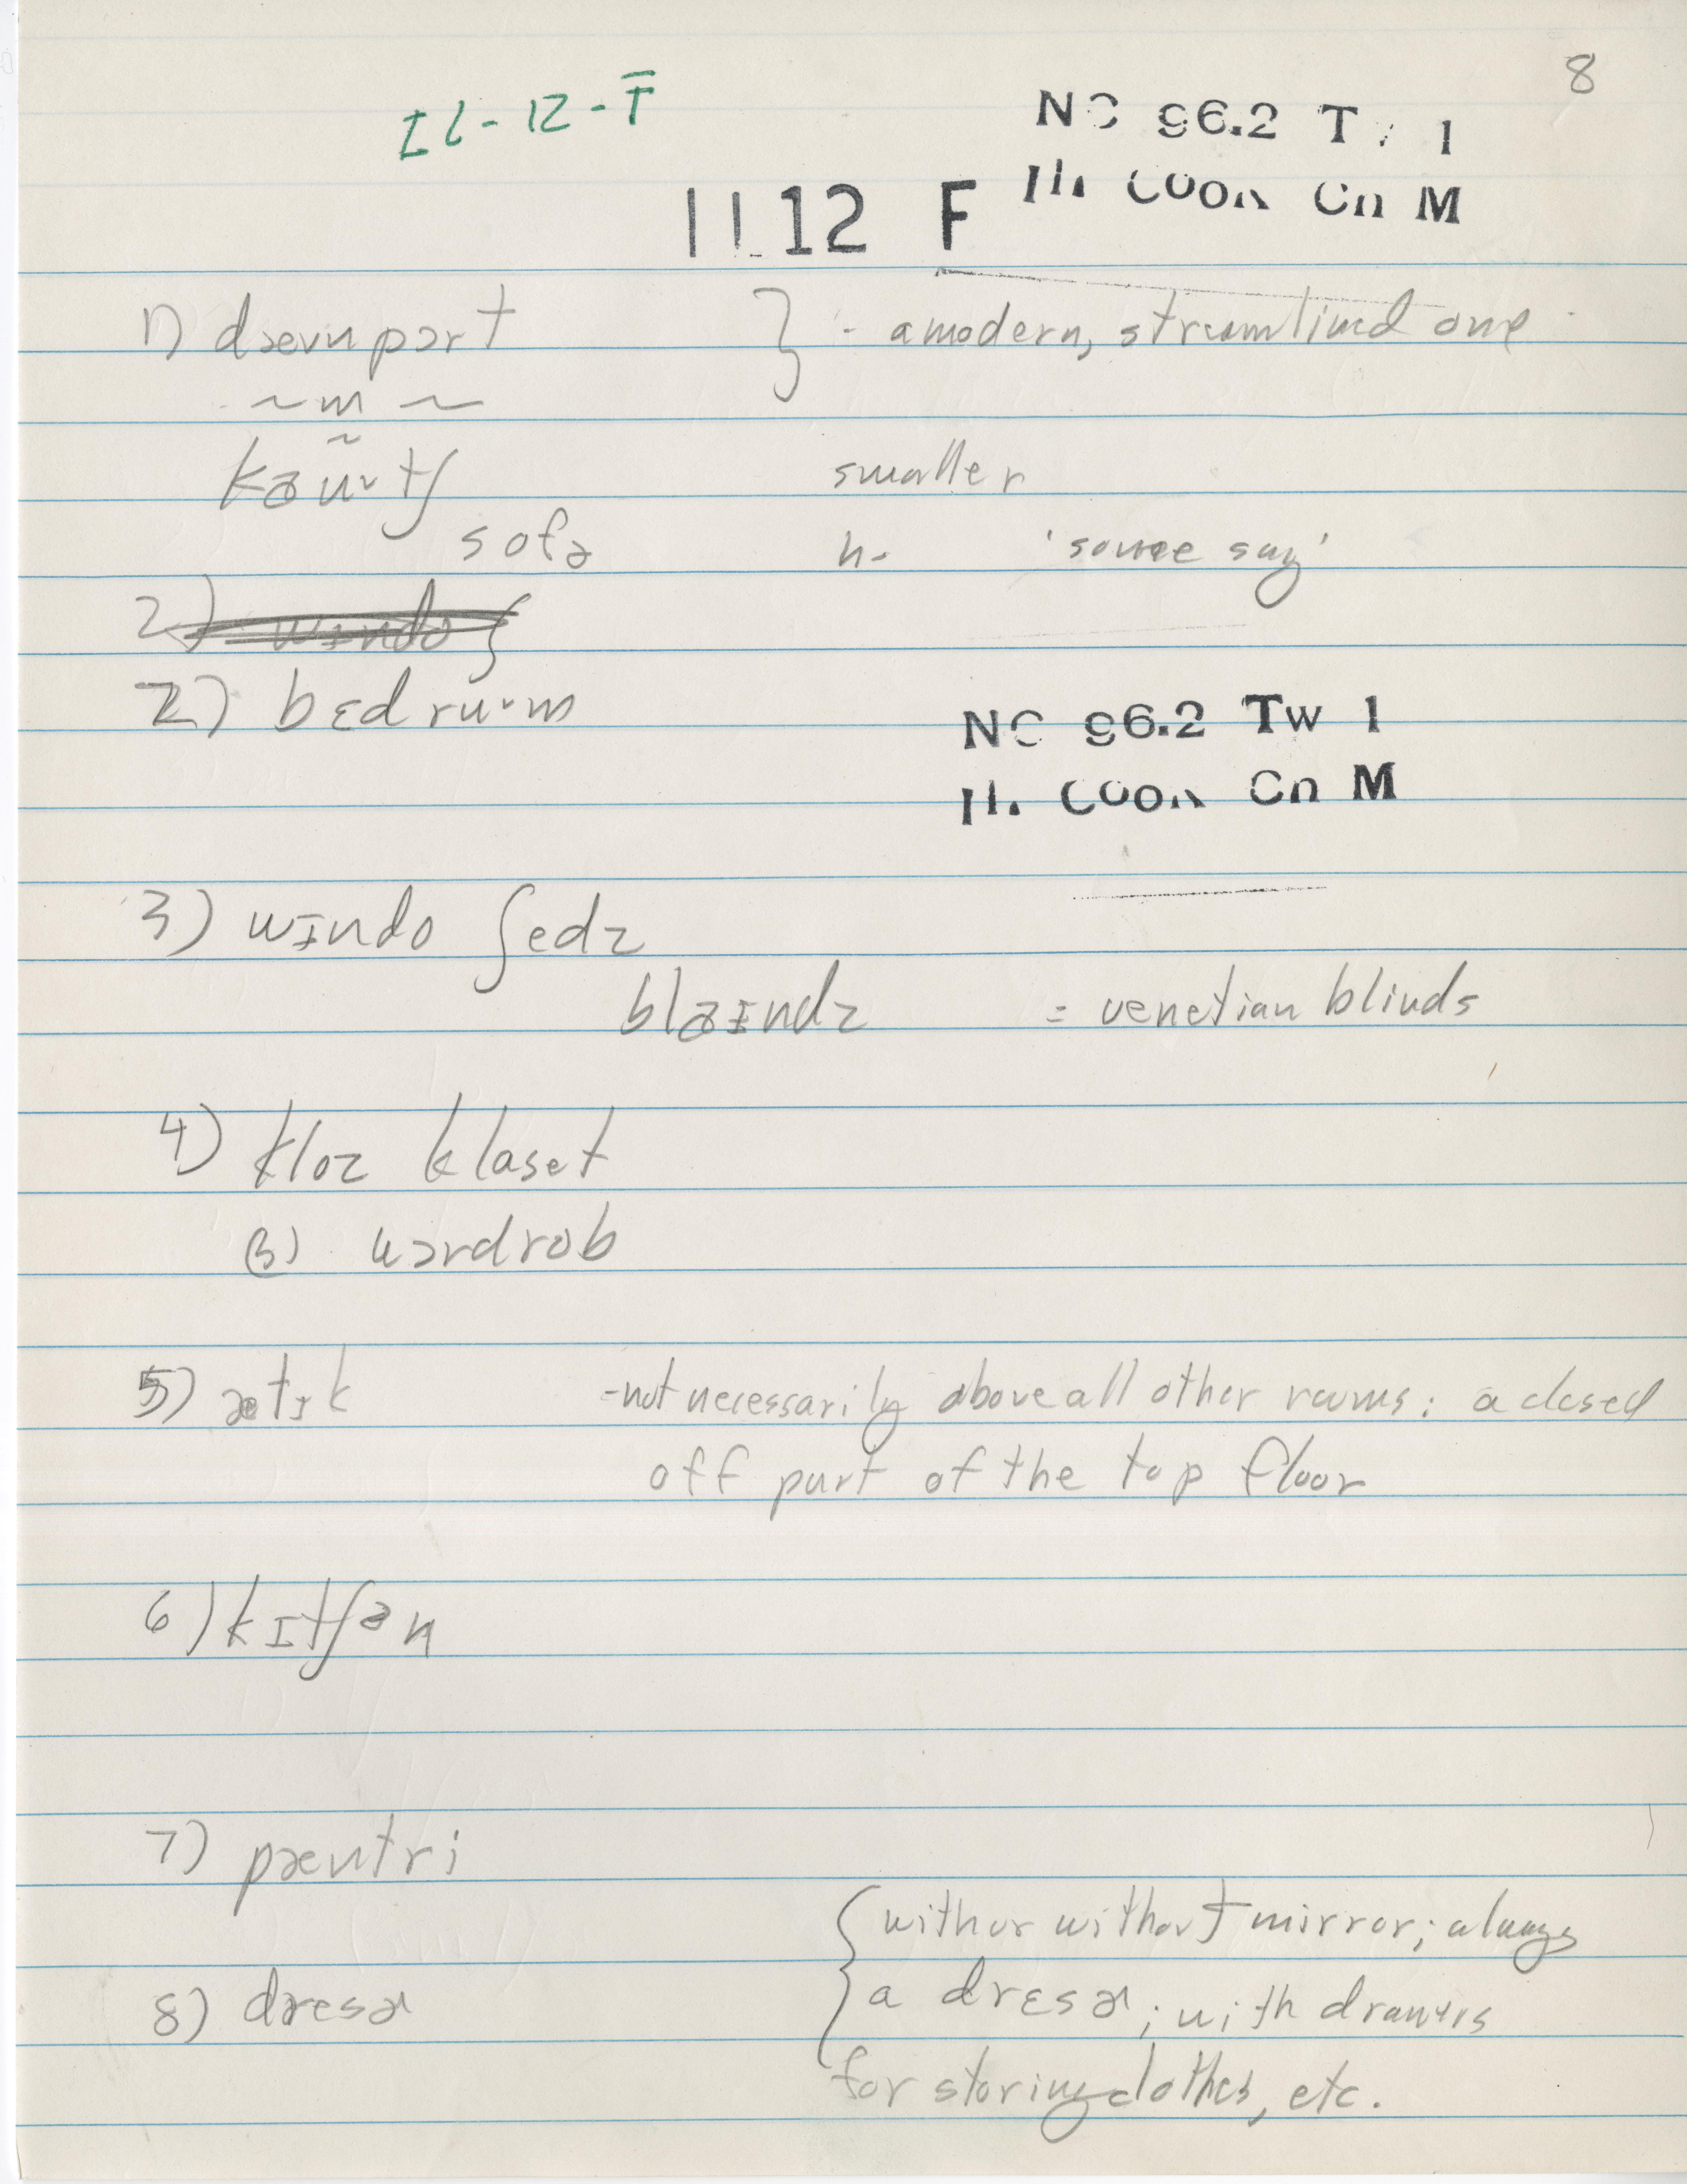 8
IL-12-F
NC 96.2 Tw 1
Il. COOK Cn M
IL 12 F
1) dævnpɔrt } - a modern, streamlined one
~ m ~
kaʊtʃ smaller
sofə h. 'some say'
2) wɪndo ʃ
2) bɛdruˑm
NC 96.2 Tw 1
Il. COOK Cn M
3) wɪndo ʃedz
blaɪndz = venetian blinds
4) kloz klaset
(3) wɔrdrob
5) ætɪk - not necessarily above all other rooms; a closed
off part of the top floor
6) kɪtʃən
7) pæntri
8) dresɚ { with or without mirror; always
a drɛsɚ; with drawers
for storing clothes, etc.